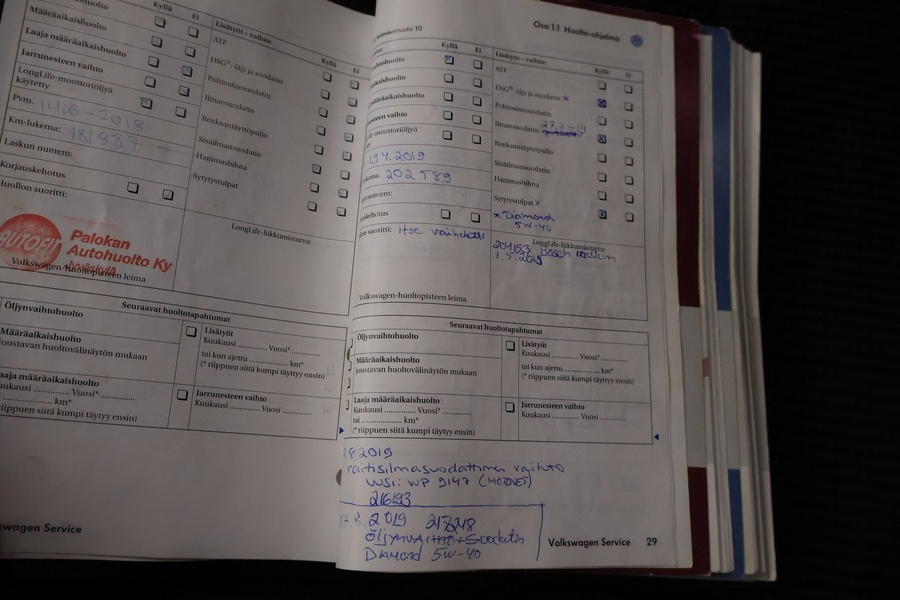 Kyllä Ei
Määräaikaishuolto
Laaja määräaikaishuolto
Jarrunesteen vaihto
LongLife-moottoriöljyä
käytetty
Pvm. 14.6-2018
Km-lukema: 181887
Laskun numero:
Korjauskehotus
Huollon suoritti:
AUTOFIT
Palokan
Autohuolto Ky
Jyväskylä
Volkswagen-huoltopisteen leima
Lisätyöt – vaihto:
Kyllä Ei
ATF
DSG®: öljy ja suodatin
Polttoainesuodatin
Ilmansuodatin
Renkaantäyttöpullo
Sisäilmansuodatin
Hammashihna
Sytytystulpat
LongLife-liikkumisturva:
Seuraavat huoltotapahtumat
Öljynvaihtohuolto
Määräaikaishuolto
joustavan huoltovälinäytön mukaan
Laaja määräaikaishuolto
Kuukausi .............. Vuosi* ..............
.............. km*
(* riippuen siitä kumpi täyttyy ensin)
Lisätyöt
Kuukausi .............. Vuosi* ..............
tai kun ajettu .............. km*
(* riippuen siitä kumpi täyttyy ensin)
Jarrunesteen vaihto
Kuukausi .............. Vuosi ..............
Volkswagen Service
Osa 1.1 Huolto-ohjelma
10
Kyllä Ei
19.4.2019
202589
Huollon suoritti: itse vaihdettu
Volkswagen-huoltopisteen leima
Lisätyöt – vaihto:
Kyllä Ei
ATF
DSG®: öljy ja suodatin *
Polttoainesuodatin
Ilmansuodatin 27.4-19
Renkaantäyttöpullo
Sisäilmansuodatin
Hammashihna
Sytytystulpat *
* Diamond
5W-40
LongLife-liikkumisturva:
204153 Bosch
1.5.2019
Seuraavat huoltotapahtumat
Öljynvaihtohuolto
Määräaikaishuolto
joustavan huoltovälinäytön mukaan
Laaja määräaikaishuolto
Kuukausi .............. Vuosi* ..............
tai .............. km*
(* riippuen siitä kumpi täyttyy ensin)
Lisätyöt
Kuukausi .............. Vuosi* ..............
tai kun ajettu .............. km*
(* riippuen siitä kumpi täyttyy ensin)
Jarrunesteen vaihto
Kuukausi .............. Vuosi ..............
.8 2019
raitisilmasuodattimen vaihto
UUSI: WP 9147 (MOTONET)
216193
.8.2019 217218
ÖLJYNVAIHTO+Suodatin
DIAMOND 5W-40
Volkswagen Service 29